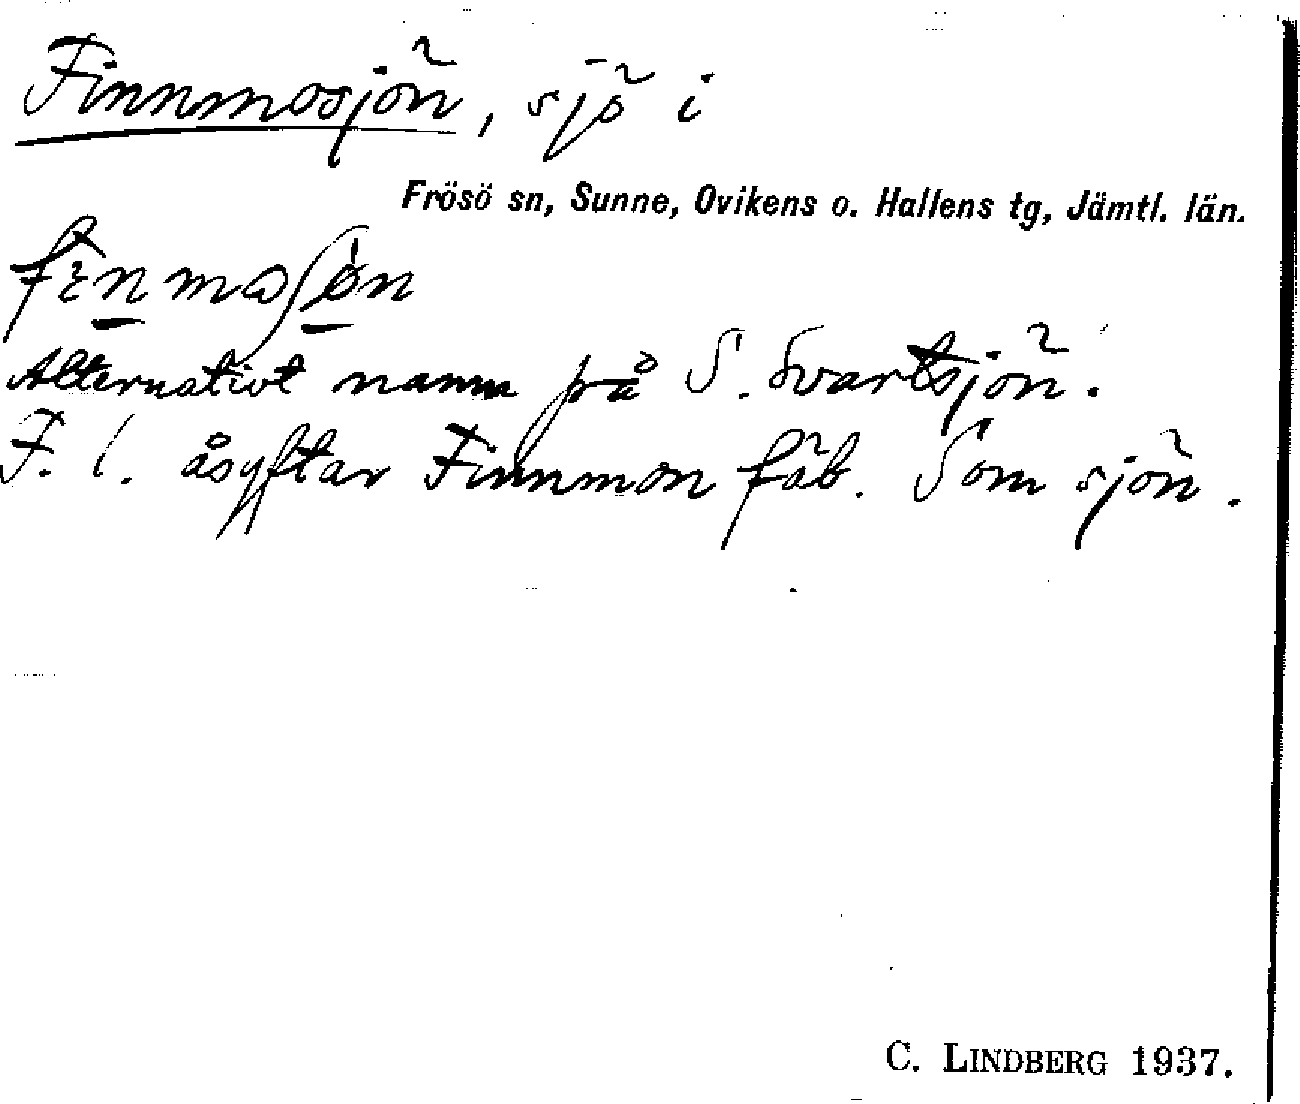 Finnmosjön, sjö i
Frösö sn, Sunne, Ovikens o. Hallens tg, Jämtl. län.
Alternativt namn på S. Svartsjön.
F. l. åsyftar Finnmon fäb. Som sjön.
C. LINDBERG 1937.